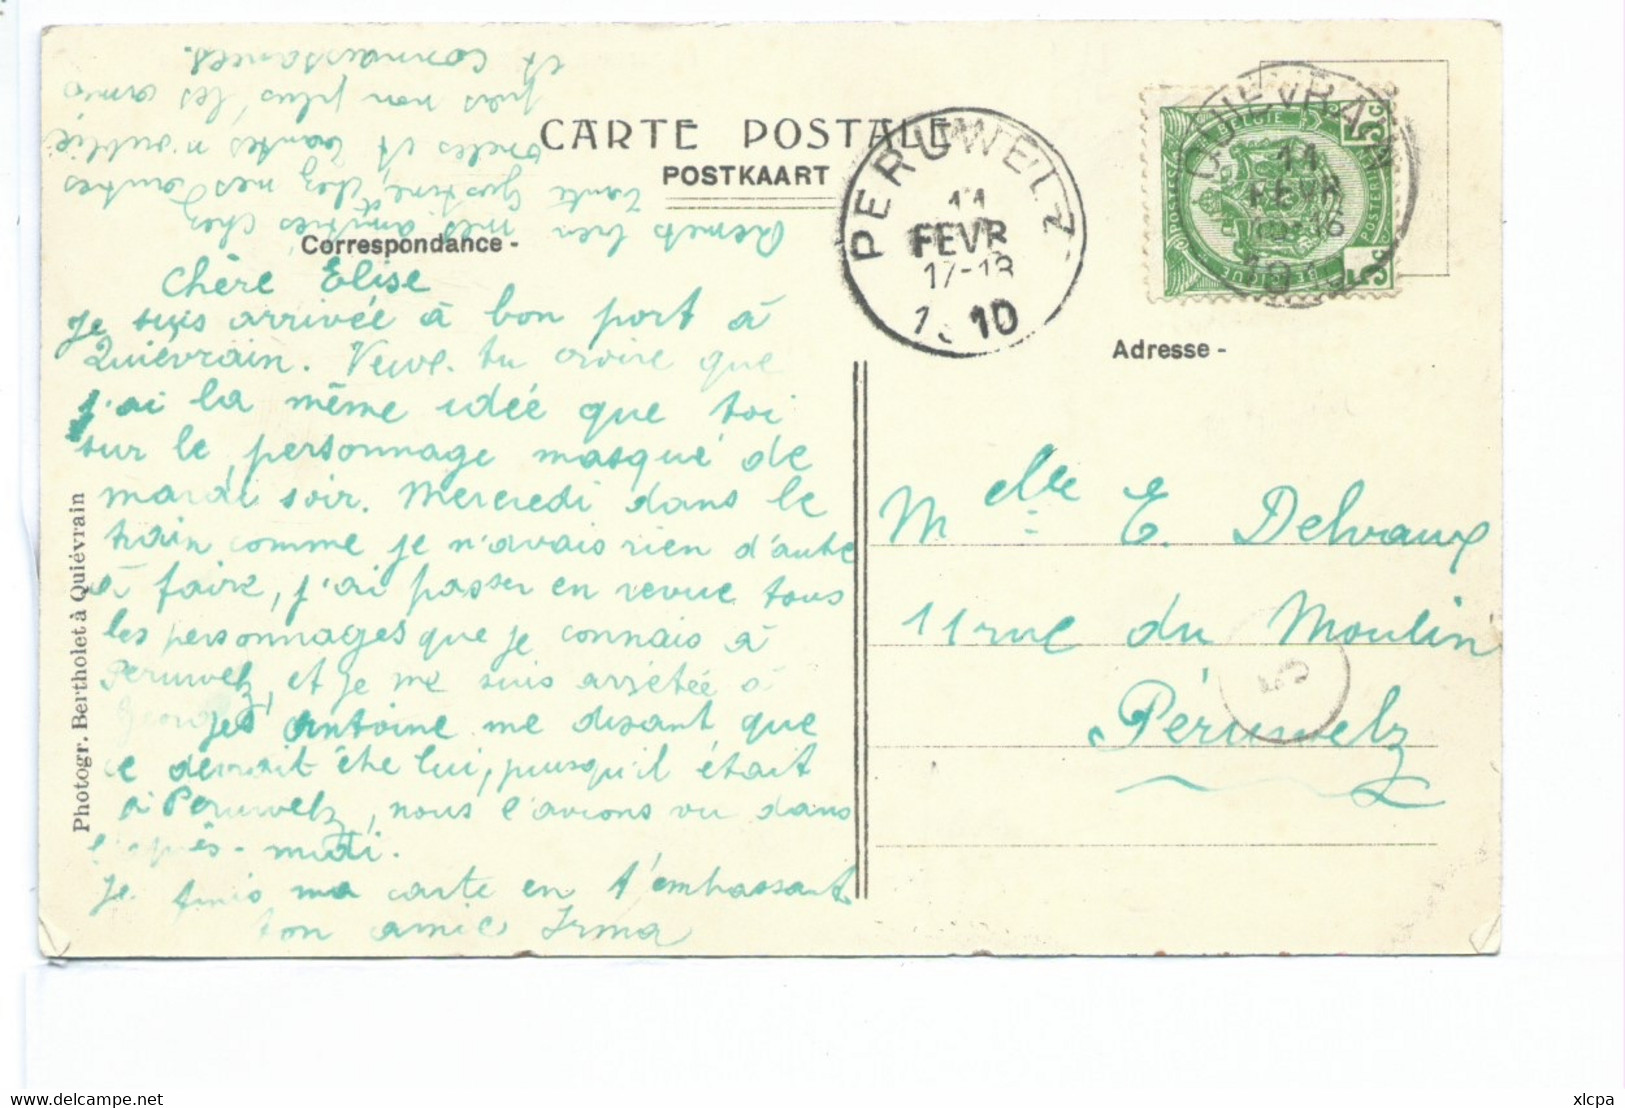 CARTE POSTALE
POSTKAART
Correspondance -
Chère Elise
Je suis arrivée à bon port à
Quiévrain. Veux-tu croire que
j'ai la même idée que toi
sur le personnage masqué de
mardi soir. Mercredi dans le
train comme je n'avais rien d'autre
à faire, j'ai passer en revue tous
les personnages que je connais à
Peruwelz, et je me suis arrêtée à
Antoine me disant que
ce devrait être lui, puisqu'il était
à Peruwelz, nous l'avions vu dans
l'après-midi.
Je finis ma carte en t'embrassant
ton amie Irma
Remets bien mes amitiés chez
tante Justine, chez mes autres
oncles et tantes n'oublie
pas non plus les amis
et connaissances.
Photogr. Bertholet à Quiévrain
PERUWELZ
11
FEVR
17-18
10
QUIEVRAIN
11
FEVR
10
POSTES
BELGIQUE
BELGIE
POSTERIJEN
5c
5c
Adresse -
Melle E. Delvaux
11 rue du Moulin
Péruwelz
5
delcampe.net
xlcpa